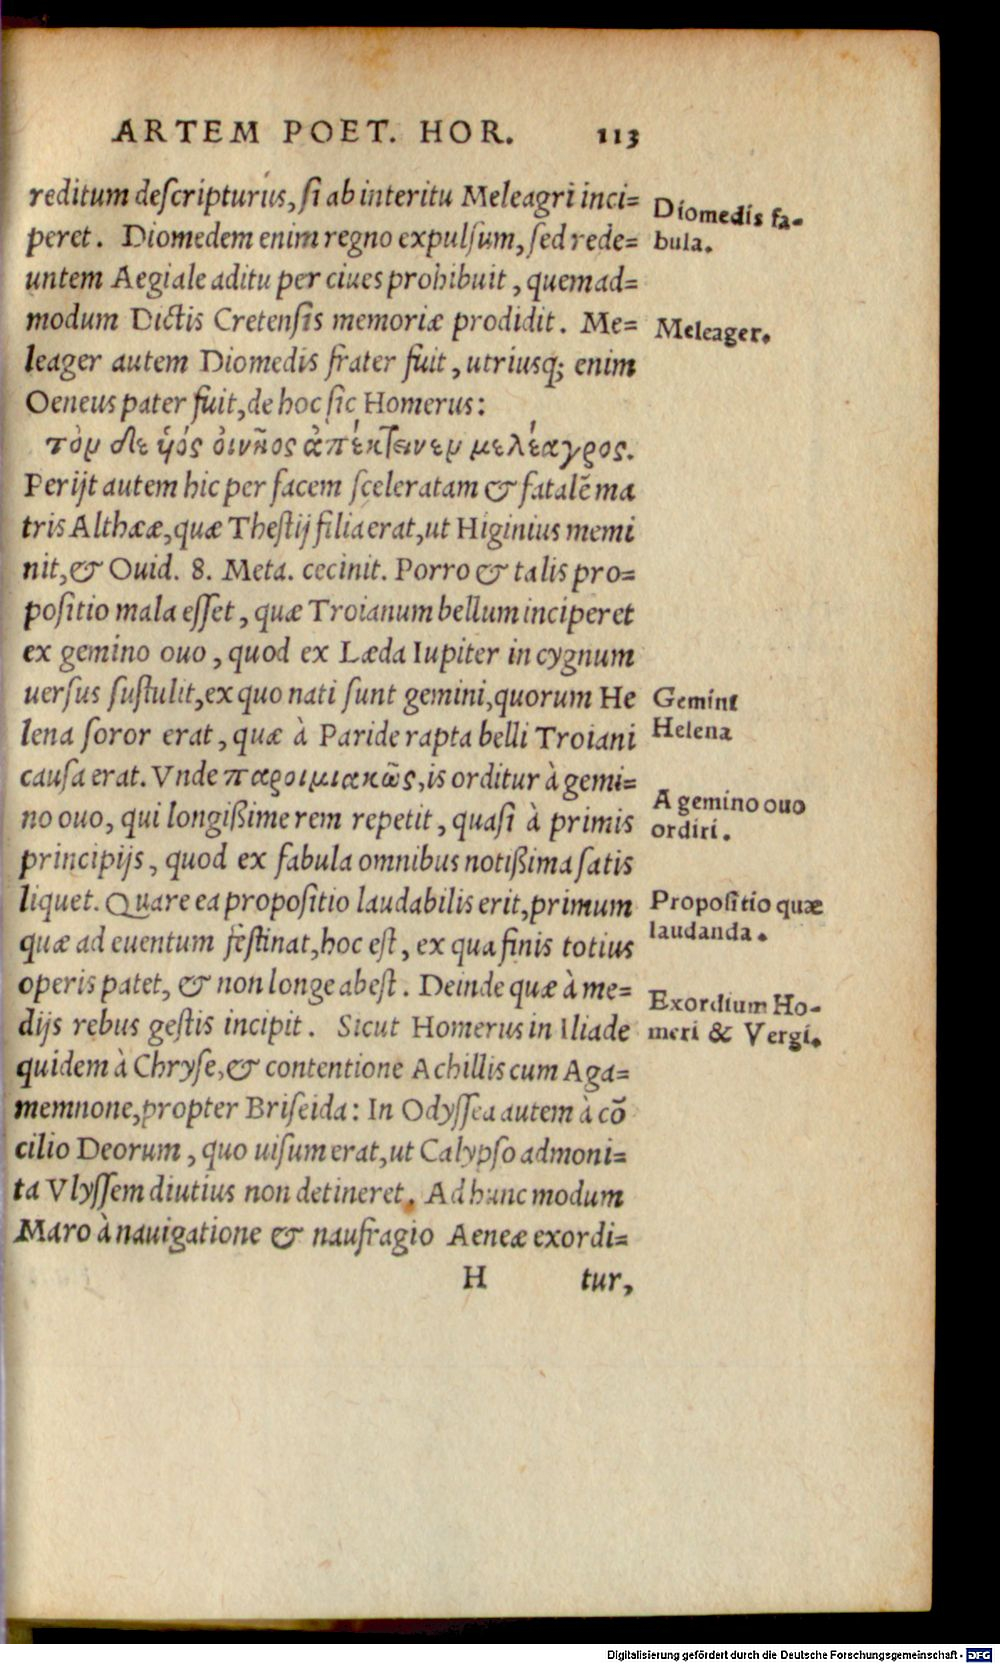 ARTEM POET. HOR. 113
reditum descripturus, si ab interitu Meleagri inci=
peret. Diomedem enim regno expulsum, sed rede=
untem Aegiale aditu per ciues prohibuit, quemad=
modum Dictis Cretensis memoriæ prodidit. Me=
leager autem Diomedis frater fuit, utriusq; enim
Oeneus pater fuit, de hoc sic Homerus:
τὸμ δε ὑός οἰνῆος ἀπέκτεινεμ μελέαγρος.
Perijt autem hic per facem sceleratam & fatalē ma
tris Althææ, quæ Thestij filia erat, ut Higinius memi
nit, & Ouid. 8. Meta. cecinit. Porro & talis pro=
positio mala esset, quæ Troianum bellum inciperet
ex gemino ouo, quod ex Læda Iupiter in cygnum
uersus sustulit, ex quo nati sunt gemini, quorum He
lena soror erat, quæ à Paride rapta belli Troiani
causa erat. Vnde παροιμιακῶς, is orditur à gemi=
no ouo, qui longißime rem repetit, quasi à primis
principijs, quod ex fabula omnibus notißima satis
liquet. Quare ea propositio laudabilis erit, primum
quæ ad euentum festinat, hoc est, ex qua finis totius
operis patet, & non longe abest. Deinde quæ à me=
dijs rebus gestis incipit. Sicut Homerus in Iliade
quidem à Chryse, & contentione Achillis cum Aga=
memnone, propter Briseida: In Odyssea autem à cō
cilio Deorum, quo uisum erat, ut Calypso admoni=
ta Vlyssem diutius non detineret. Ad hunc modum
Maro à nauigatione & naufragio Aeneæ exordi=
H tur,
Diomedis fa-
bula.
Meleager.
Gemini
Helena
A gemino ouo
ordiri.
Propositio quæ
laudanda.
Exordium Ho-
meri & Vergi.
Digitalisierung gefördert durch die Deutsche Forschungsgemeinschaft - DFG